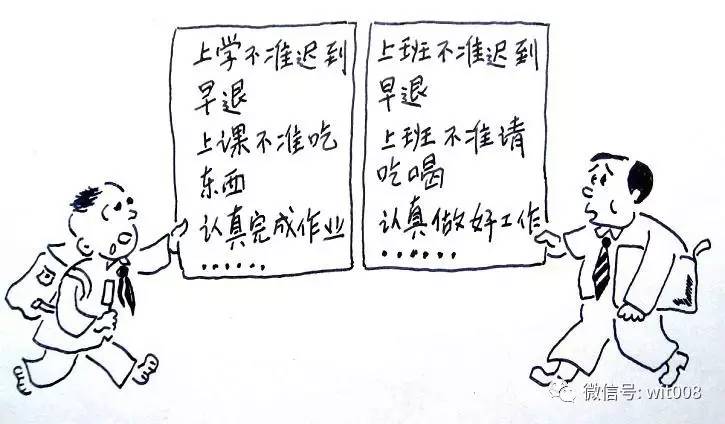 上学不准迟到
早退
上课不准吃
东西
认真完成作业
......
上班不准迟到
早退
上班不准请
吃喝
认真做好工作
......
微信号: wit008